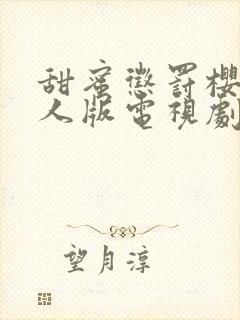 甜蜜懲罰櫻
人版電視劇
望月淳